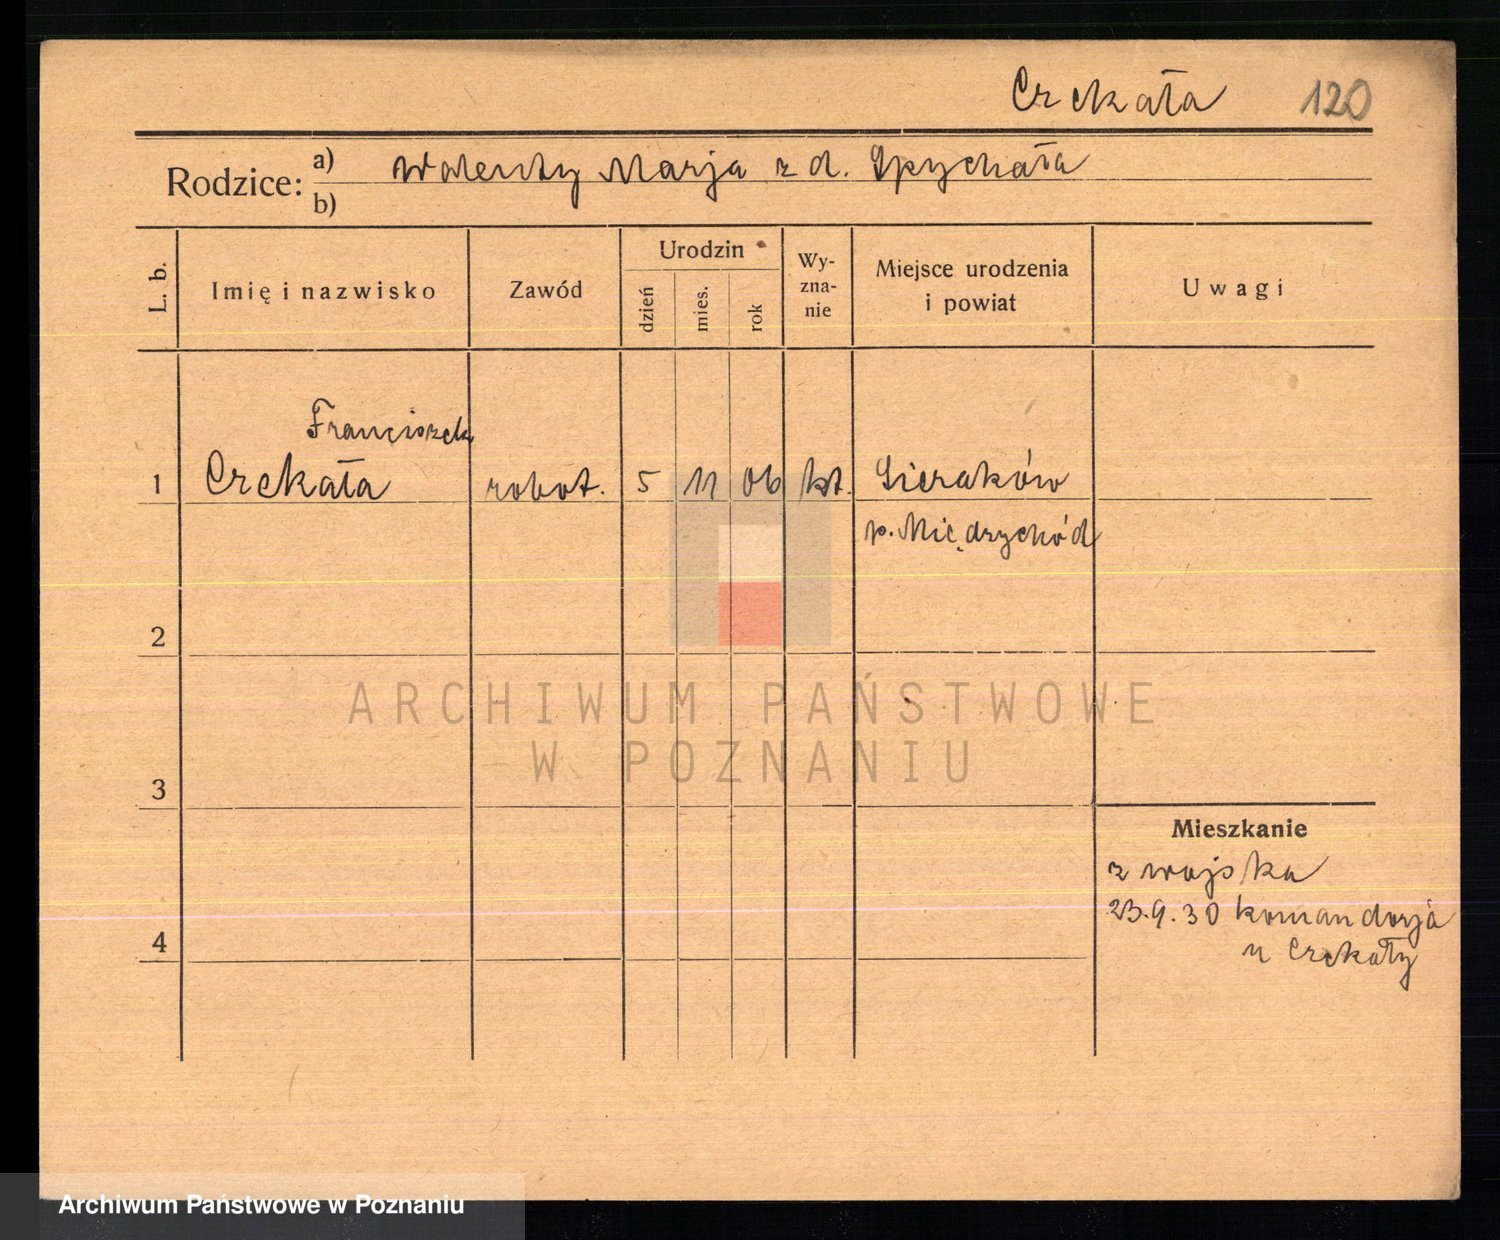 Czekała 120
Rodzice: a) Walenty Marja z d. Spychała
b)
L. b. Imię i nazwisko Zawód Urodzin dzień mies. rok Wy-zna-nie Miejsce urodzenia i powiat Uwagi
Franciszek
1 Czekała robot. 5 11 06 kat. Sieraków
p. Międzychód
2
ARCHIWUM PAŃSTWOWE
W POZNANIU
3
Mieszkanie
z wojska
23.9.30 komandorja
4
u Czekały
Archiwum Państwowe w Poznaniu